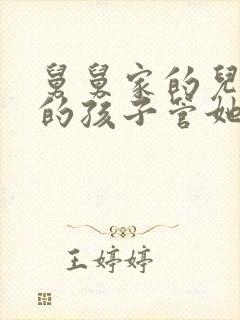 舅舅家的兒
的孩子管她
王婷婷